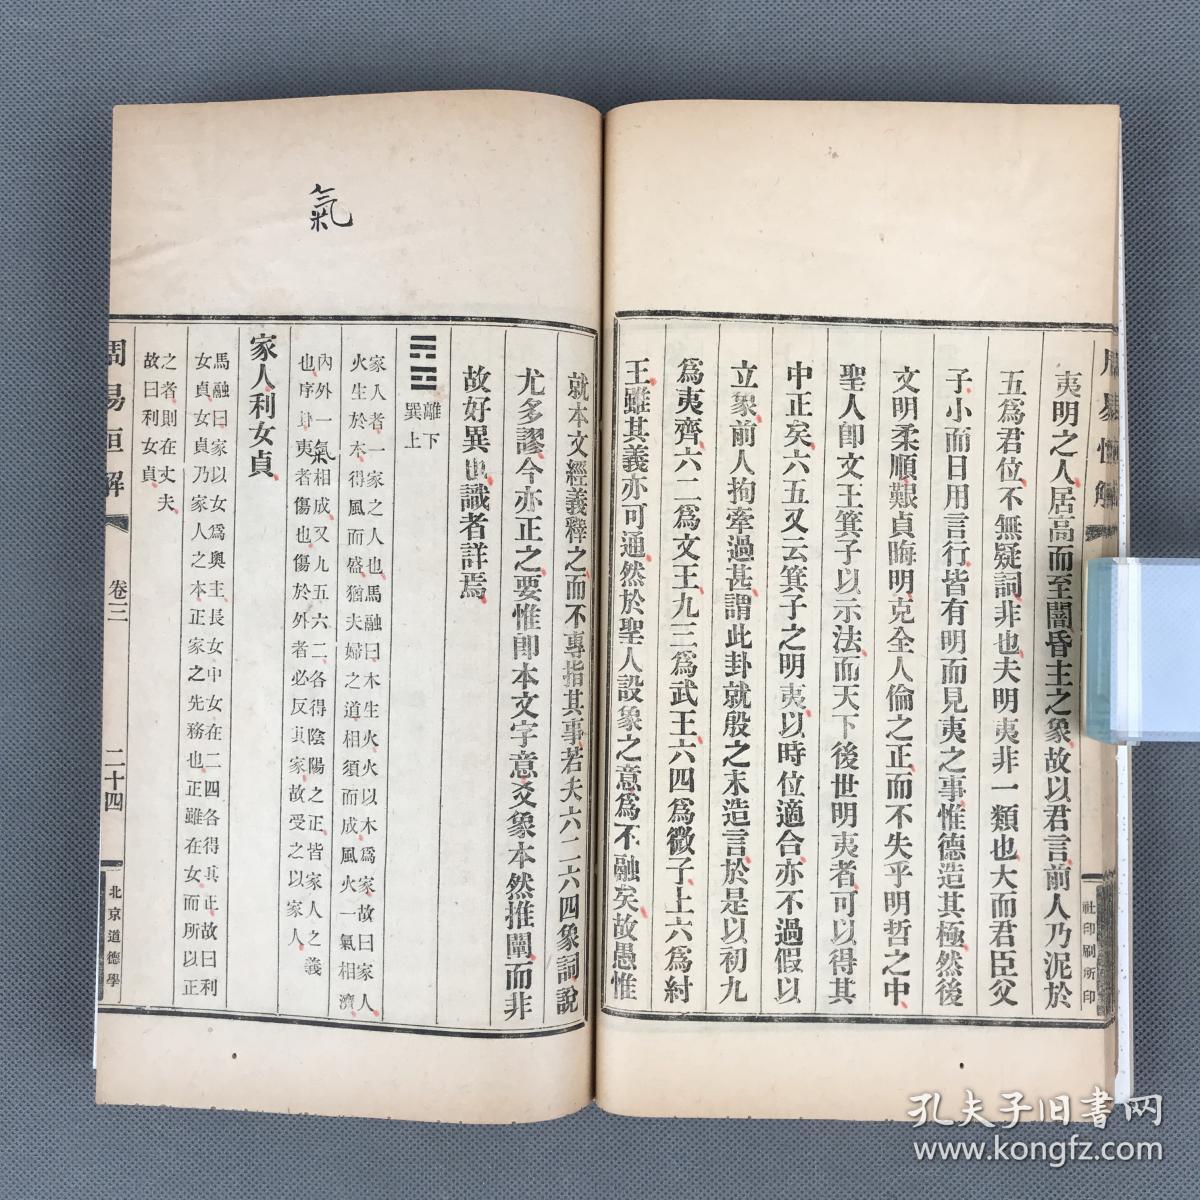 夷明之人居高而至闇昏主之象故以君言前人乃泥於
五爲君位不無疑詞非也夫明夷非一類也大而君臣父
子小而日用言行皆有明而見夷之事惟德造其極然後
文明柔順艱貞晦明克全人倫之正而不失乎明哲之中
聖人卽文王箕子以示法而天下後世明夷者可以得其
中正矣六五又云箕子之明夷以時位適合亦不過假以
立象前人拘牽過甚謂此卦就殷之末造言於是以初九
爲夷齊六二爲文王九三爲武王六四爲微子上六爲紂
王雖其義亦可通然於聖人設象之意爲不融矣故愚惟
社印刷所印
氣
就本文經義釋之而不專指其事若夫六二六四象詞說
尤多謬今亦正之要惟卽本文字意爻象本然推闡而非
故好異也識者詳焉
離下
巽上
家人者一家之人也馬融曰木生火火以木爲家故曰家人
火生於木得風而盛猶夫婦之道相須而成風火一氣相濟
內外一氣相成又九五六二各得陰陽之正皆家人之義
也序卦夷者傷也傷於外者必反其家故受之以家人
家人利女貞
馬融曰家以女爲奧主長女中女在二四各得其正故曰利
女貞女貞乃家人之本正家之先務也正雖在女而所以正
之者則在丈夫
故曰利女貞
周易恒解
卷三
二十四
北京道德學
孔夫子旧书网
www.kongfz.com